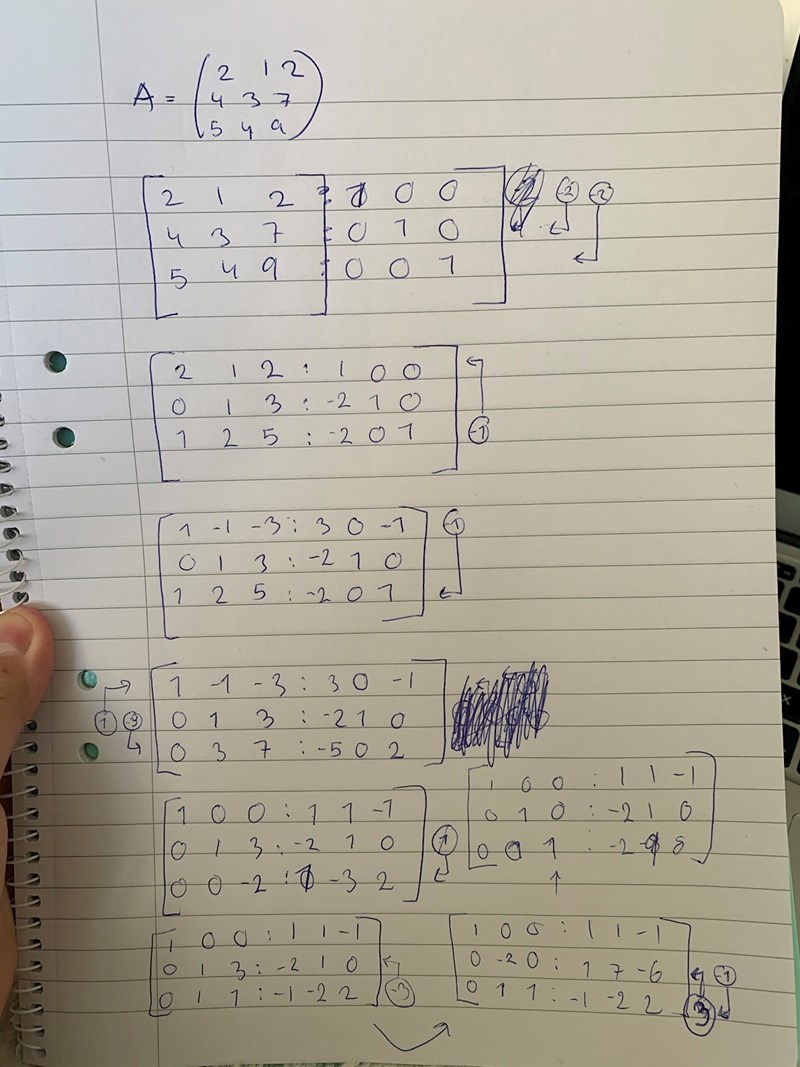 A = ( 2 1 2
4 3 7
5 4 9 )
[ 2 1 2 : 1 0 0 ] -2 -2
4 3 7 : 0 1 0
5 4 9 : 0 0 1
[ 2 1 2 : 1 0 0 ]
0 1 3 : -2 1 0
1 2 5 : -2 0 1 -1
[ 1 -1 -3 : 3 0 -1 ] -1
0 1 3 : -2 1 0
1 2 5 : -2 0 1
[ 1 -1 -3 : 3 0 -1 ]
1 -3 0 1 3 : -2 1 0
0 3 7 : -5 0 2
[ 1 0 0 : 1 1 -1 ]
0 1 3 : -2 1 0 1
0 0 -2 : 1 -3 2
[ 1 0 0 : 1 1 -1 ]
0 1 0 : -2 1 0
0 0 1 : -2
[ 1 0 0 : 1 1 -1 ]
0 1 3 : -2 1 0
0 1 1 : -1 -2 2 -3
[ 1 0 0 : 1 1 -1 ]
0 -2 0 : 1 7 -6 -1
0 1 1 : -1 -2 2 3